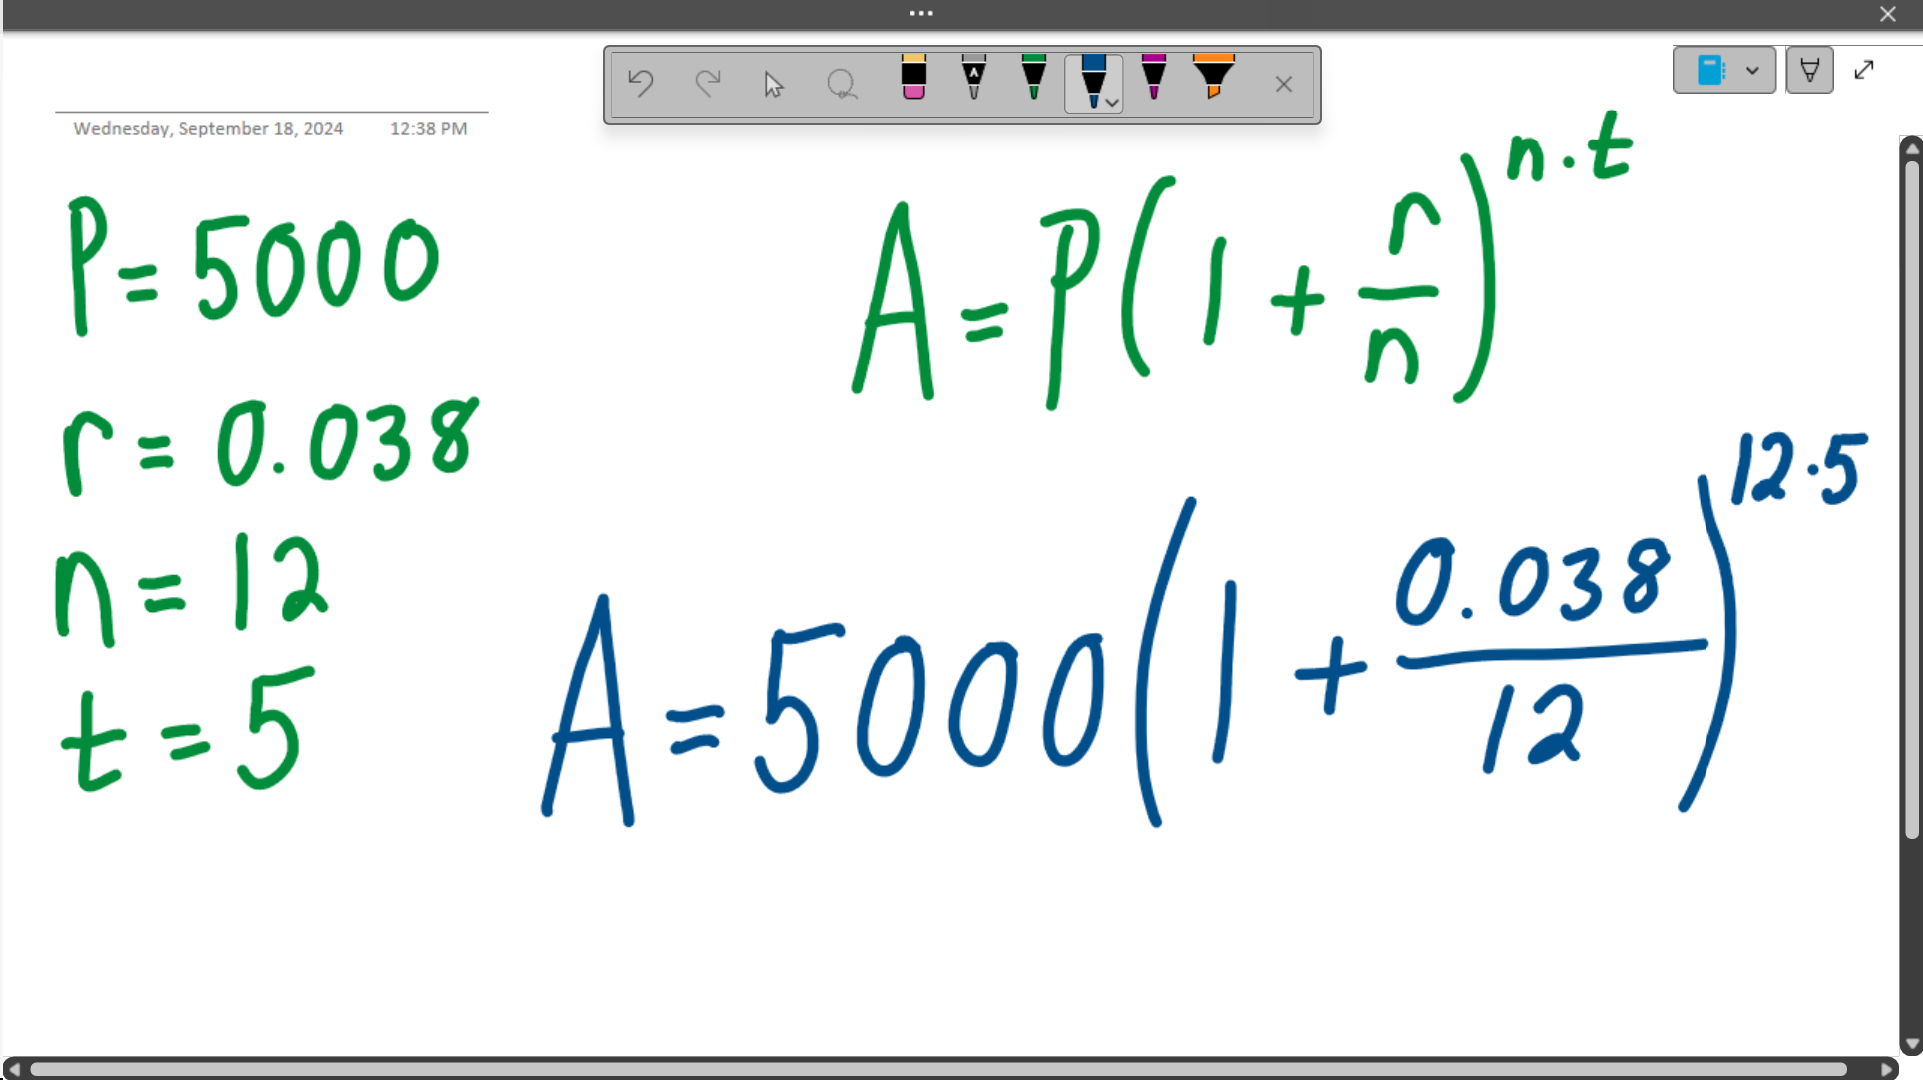 Wednesday, September 18, 2024 12:38 PM
P = 5000
r = 0.038
n = 12
t = 5
A = P(1 + r/n)^(n·t)
A = 5000(1 + 0.038/12)^(12·5)